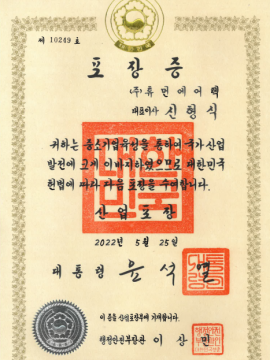 제 10249 호
포장증
(주)휴먼에어텍
대표이사 신형식
귀하는 중소기업육성을 통하여 국가산업
발전에 크게 이바지하였으므로 대한민국
헌법에 따라 다음 포장을 수여합니다.
산업포장
2022년 5월 25일
대통령 윤석열
이 증을 산업포장부에 기재합니다.
행정안전부장관 이상민